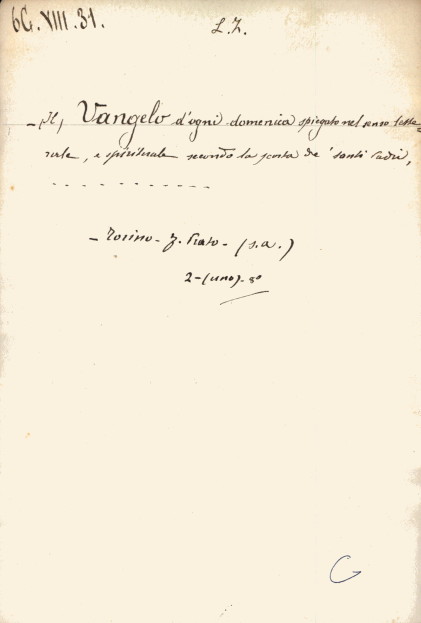 6G. XIII. 31.
L. Z.
- Il, Vangelo d'ogni domenica spiegato nel senso lette-
rale, e spirituale secondo la scorta de' santi Padri,
- - - - - - - - - - -
- Torino - Prato - (s. a.)
2 - (uno) - 8°
G